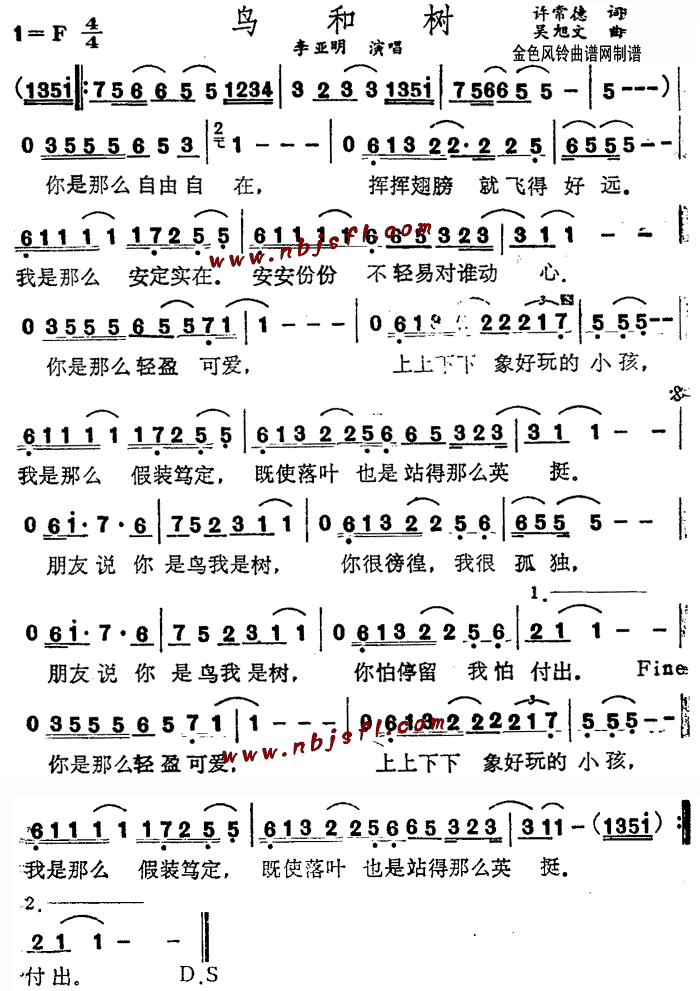 鸟 和 树
1=F 4/4
许常德 词
吴旭文 曲
李亚明 演唱
金色风铃曲谱网制谱
(1351 ‖: 7 5 6 6 5 5 1234 | 3 2 3 3 1351 | 75665 5 - | 5 - - - )|
0 3 5 5 5 5 6 5 3 | 1 - - - | 0 6 1 3 2 2· 2 2 5 | 6 5 5 5 - - |
你是那么自由自 在， 挥挥翅膀 就飞得 好 远。
6 1 1 1 1 1 7 2 5 5 | 6 1 1 1 1 6 6 5 3 2 3 | 3 1 1 - -
www.nbjsfl.com
我是那么 安定实在。 安安份份 不轻易对谁动 心．
0 3 5 5 5 6 5 5 7 1 | 1 - - - | 0 6 1 2 2 2 2 1 7 | 5 5 5 - -
你是那么轻盈 可爱， 上上下下 象好玩的 小 孩，
6 1 1 1 1 1 7 2 5 5 | 6 1 3 2 2 5 6 6 5 3 2 3 | 3 1 1 - -
我是那么 假装笃定， 既使落叶 也是站得那么英 挺．
0 6 1· 7· 6 | 7 5 2 3 1 1 | 0 6 1 3 2 2 5 6 | 6 5 5 5 - -
朋友说 你 是鸟我是树， 你很徬徨， 我很 孤 独，
1.
0 6 1· 7· 6 | 7 5 2 3 1 1 | 0 6 1 3 2 2 5 6 | 2 1 1 - -
朋友说 你 是鸟我是树， 你怕停留 我怕 付出． Fine
0 3 5 5 5 6 5 7 1 | 1 - - - | 0 6 1 3 2 2 2 2 2 1 7 | 5 5 5 - -
www.nbjsfl.com
你是那么轻盈可爱， 上上下下 象好玩的 小 孩，
6 1 1 1 1 1 7 2 5 5 | 6 1 3 2 2 5 6 6 5 3 2 3 | 3 1 1 - (1351) :‖
我是那么 假装笃定， 既使落叶 也是站得那么英 挺．
2.
2 1 1 - - ‖
付出。 D.S